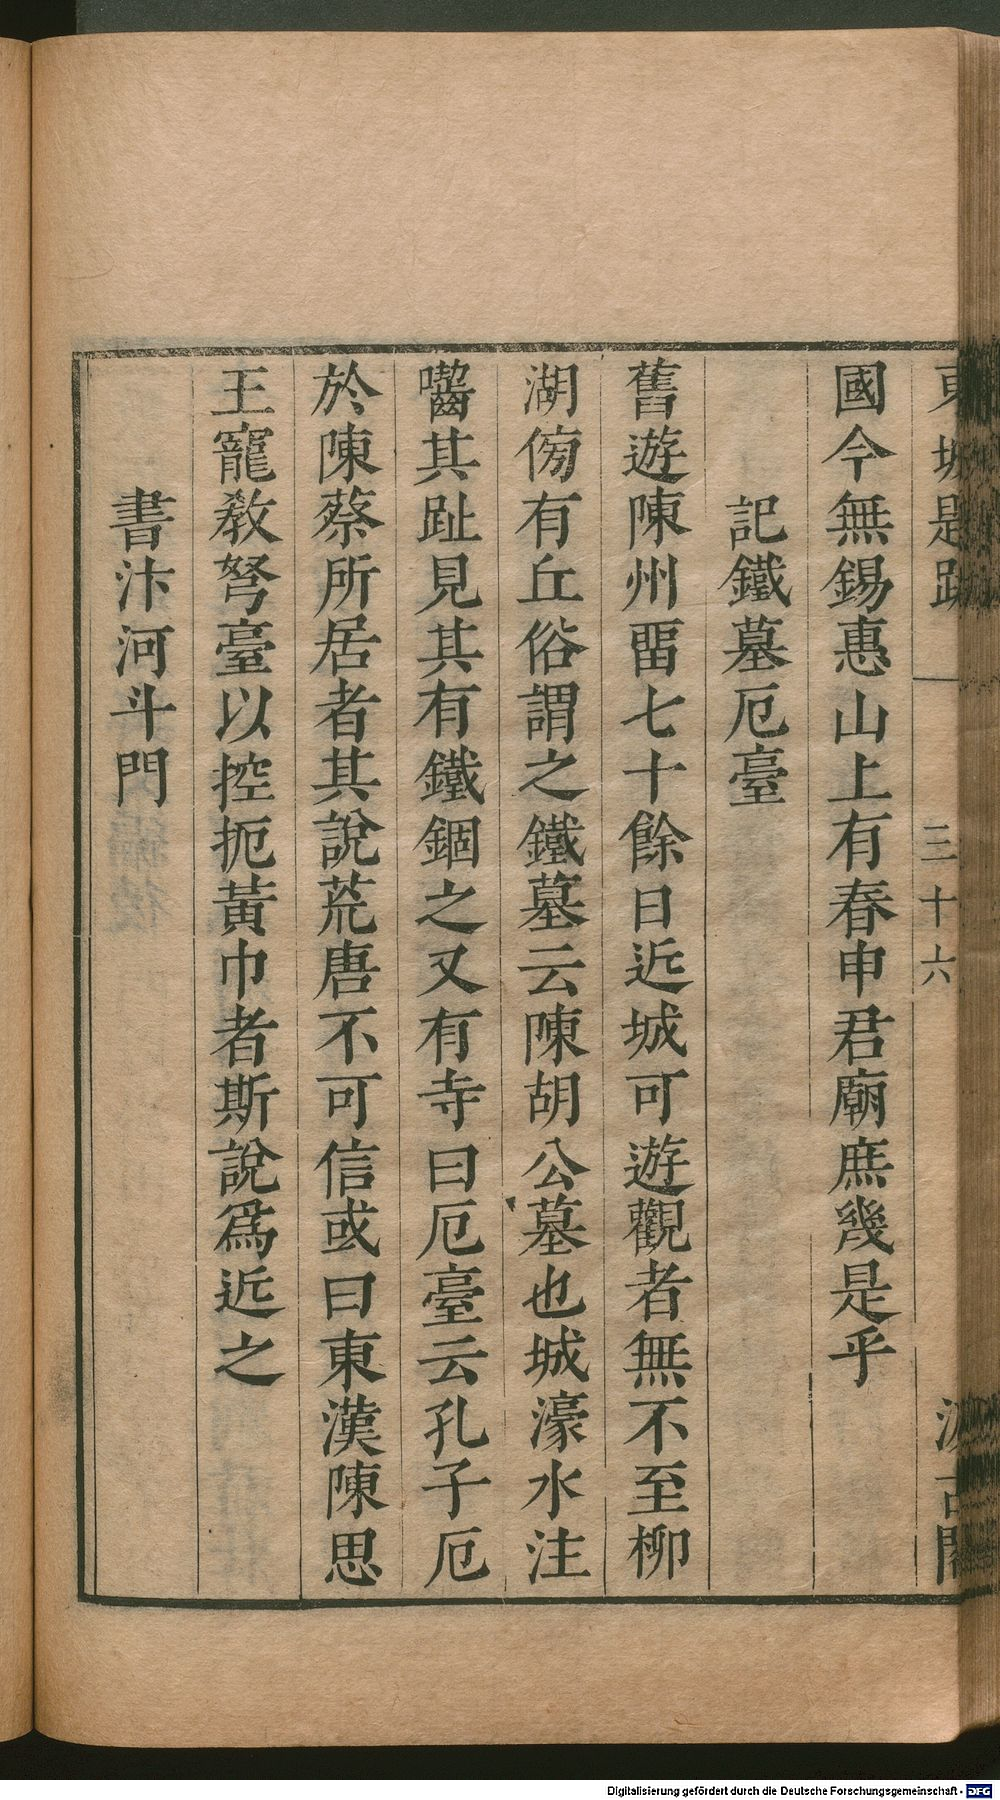 東坡題跋 三十六 汲古閣
國今無錫惠山上有春申君廟庶幾是乎
記鐵墓厄臺
舊遊陳州畱七十餘日近城可遊觀者無不至柳
湖傍有丘俗謂之鐵墓云陳胡公墓也城濠水注
囓其趾見其有鐵錮之又有寺曰厄臺云孔子厄
於陳蔡所居者其說荒唐不可信或曰東漢陳思
王寵教弩臺以控扼黃巾者斯說爲近之
書汴河斗門
Digitalisierung gefördert durch die Deutsche Forschungsgemeinschaft - DFG